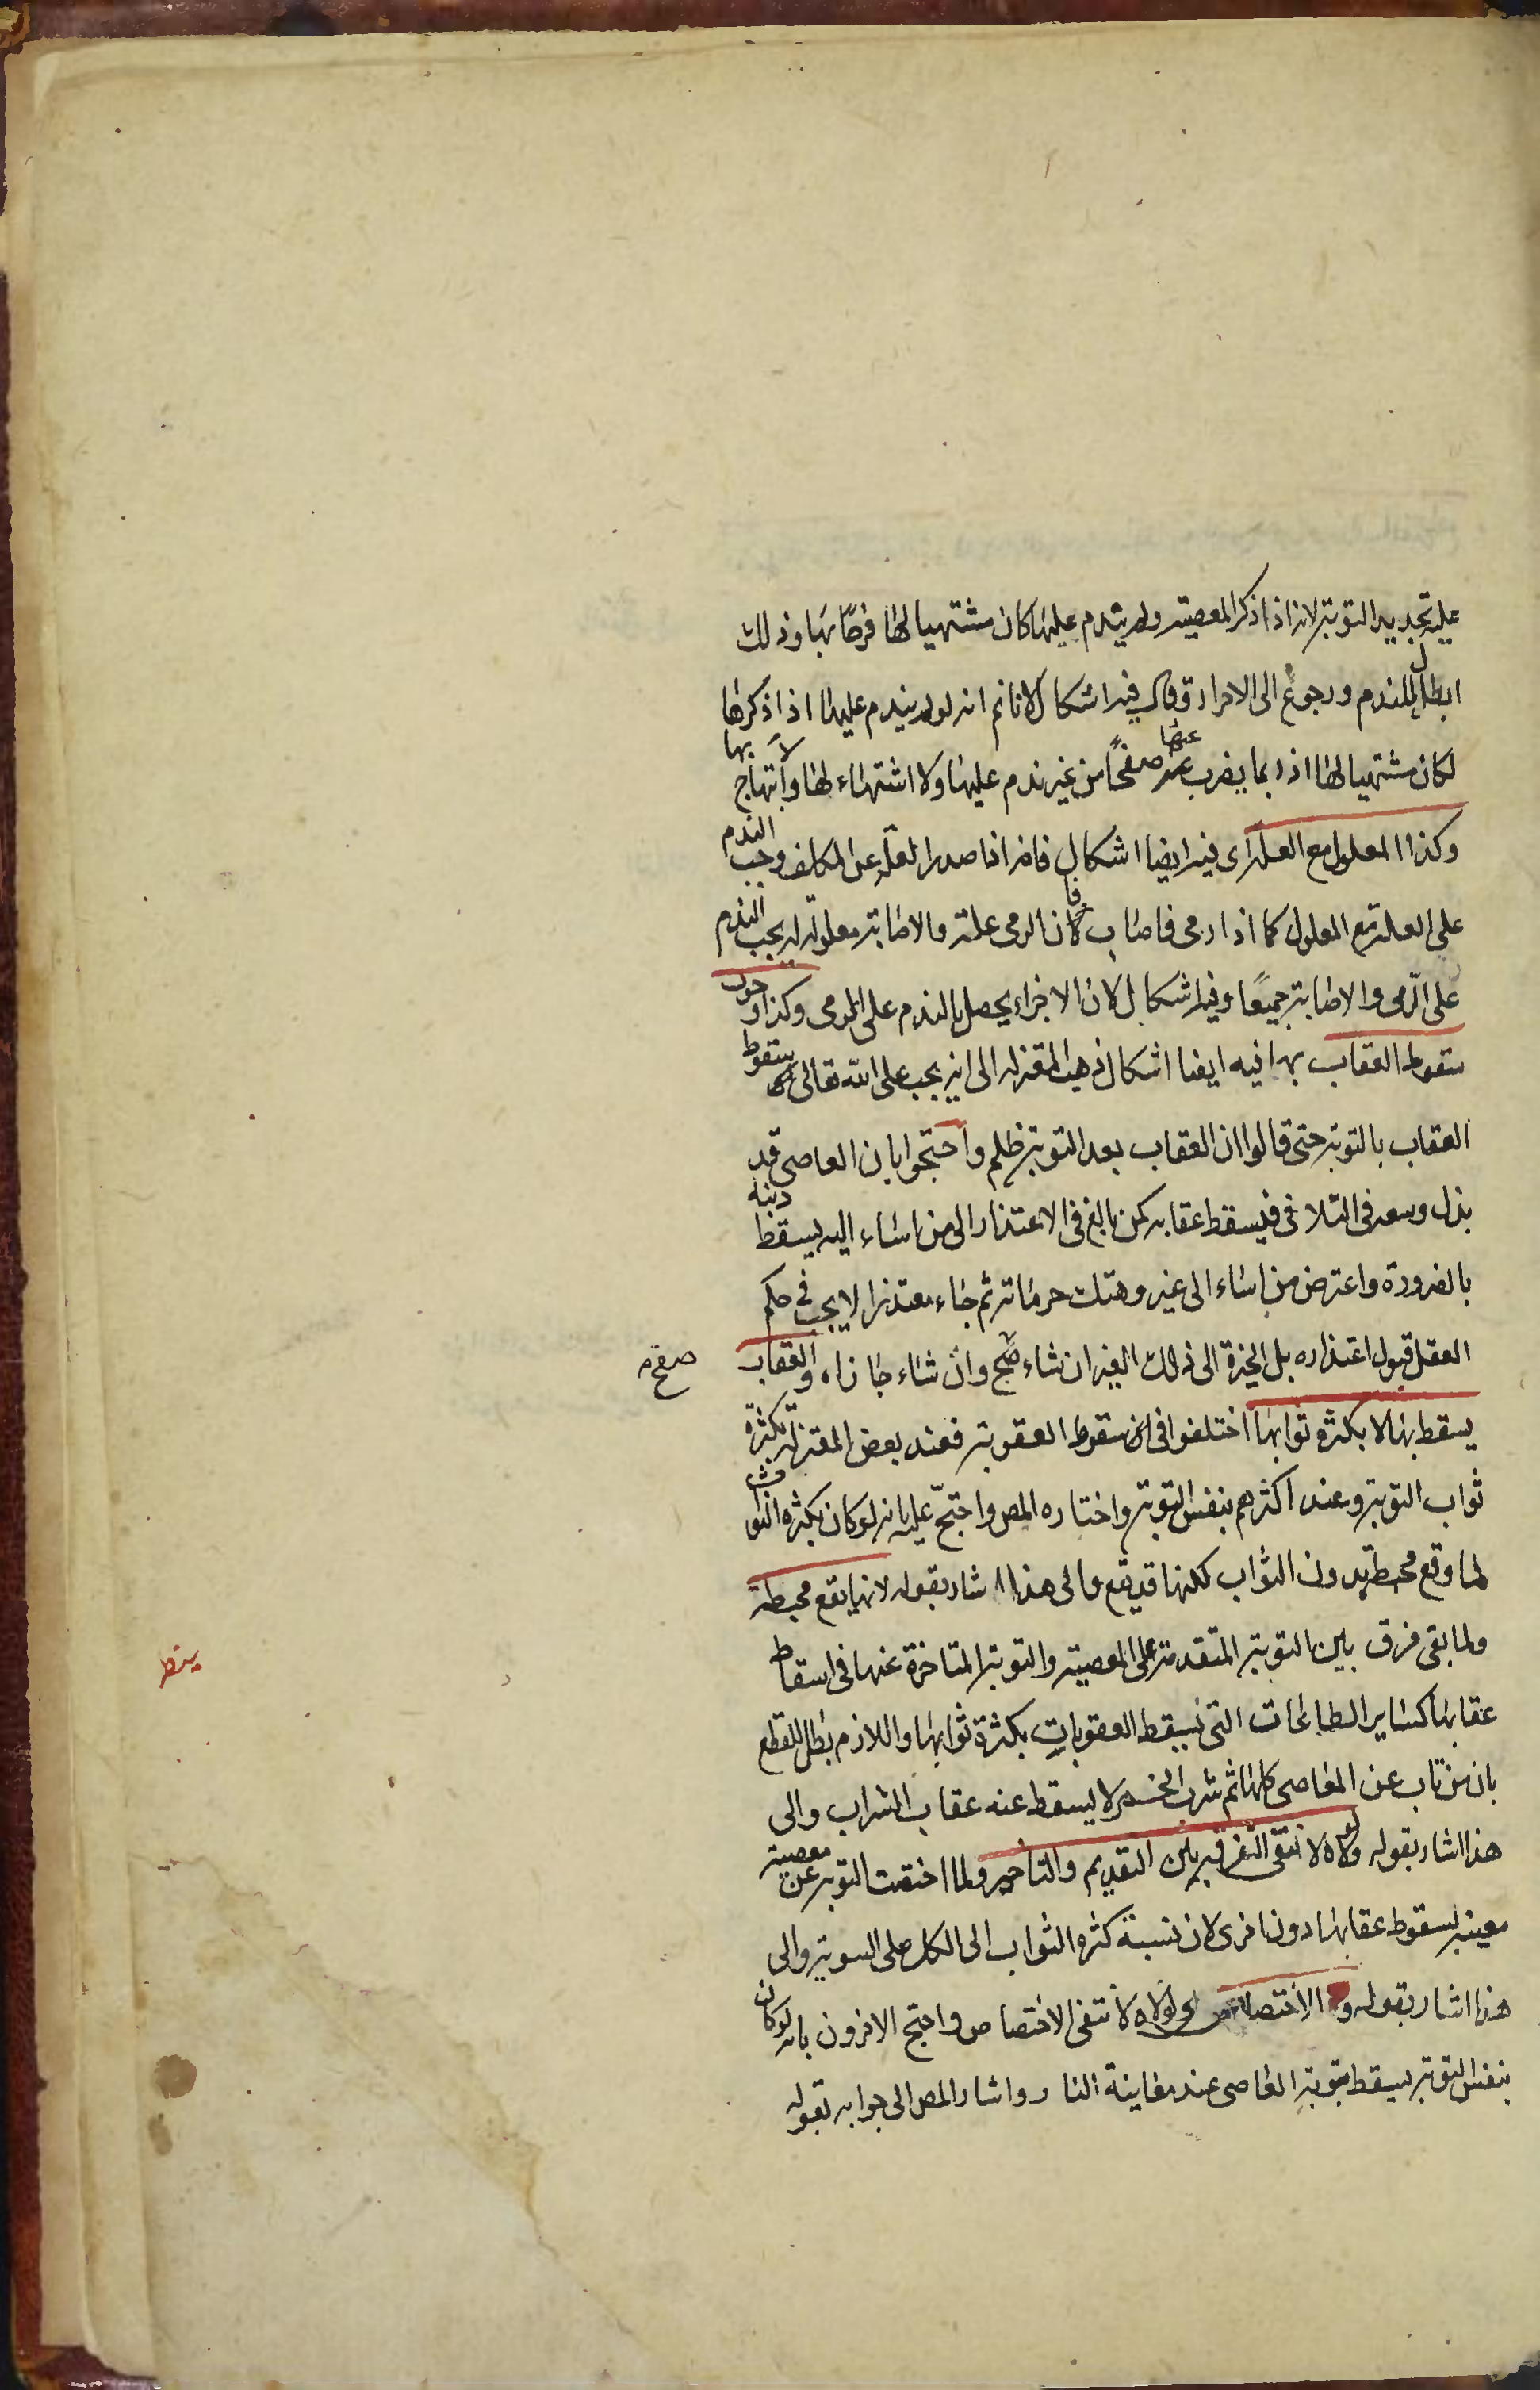 عليه تجديد التوبة لانه اذا ذكر المعصية ولم يندم عليها كان مشتهيا لها فرحًا بها وذلك
ابطال للندم ورجوع الى الاصرار وقال فيه اشكال لانا نم انه لو لم يندم عليها اذا ذكرها
لكان مشتهيا لها اذ ربما يضرب عنها صفحًا من غير ندم عليها ولا اشتهاء لها ولا ابتهاج بها
وكذا المعلول مع العلة اى فيه ايضا اشكال فانه اذا صدر العلة عن المكلف وجب الندم
على العلة مع المعلول كما اذا رمى فاصاب فان الرمى علة والاصابة معلولة له يجب الندم
على الرّمى والاصابة جميعًا وفيه اشكال لان الاجزاء يحصل بالندم على الرمى وكذا وجوب
سقوط العقاب بها فيه ايضا اشكال ذهب المعتزلة الى انه يجب على الله تعالى سقوط
العقاب بالتوبة حتى قالوا ان العقاب بعد التوبة ظلم واحتجوا بان العاصى قد
بذل وسعه فى التلافى فيسقط عقابه كمن بالغ فى الاعتذار الى من اساء اليه يسقط ذنبه
بالضرورة واعترض من اساء الى غيره وهتك حرماته ثم جاء معتذرا لا يجب فى حكم
العقل قبول اعتذاره بل الخيرة الى ذلك الغير ان شاء صفح وان شاء جازاه والعقاب
صفح
يسقط بها لا بكثرة ثوابها اختلفوا فى سقوط العقوبة فعند بعض المعتزلة بكثرة
ثواب التوبة وعند اكثرهم بنفس التوبة واختاره المص واحتجّ عليه بانه لو كان بكثرة الثواب
لما وقع محبطة بدون الثواب لكنها قد يقع والى هذا اشار بقوله لانها يقع محبطة
ولما بقى فرق بين التوبة المتقدمة على المعصية والتوبة المتاخرة عنها فى اسقاط
عقابها كسائر الطاعات التى يسقط العقوبات بكثرة ثوابها واللازم بطل للقطع
بان من تاب عن المعاصى كلها ثم شرب الخمر لا يسقط عنه عقاب الشراب والى
هذا اشار بقوله ولولاه لانتفى الفرق بين التقديم والتاخير ولما اختصت التوبة عن معصية
معينة بسقوط عقابها دون اخرى لان نسبة كثرة الثواب الى الكل على السوية والى
هذا اشار بقوله و الاختصاص اى لولاه لانتفى الاختصاص واحتج الاخرون بانه لو كان
بنفس التوبة يسقط بتوبة العاصى عند معاينة النار واشار المص الى جوابه بقوله